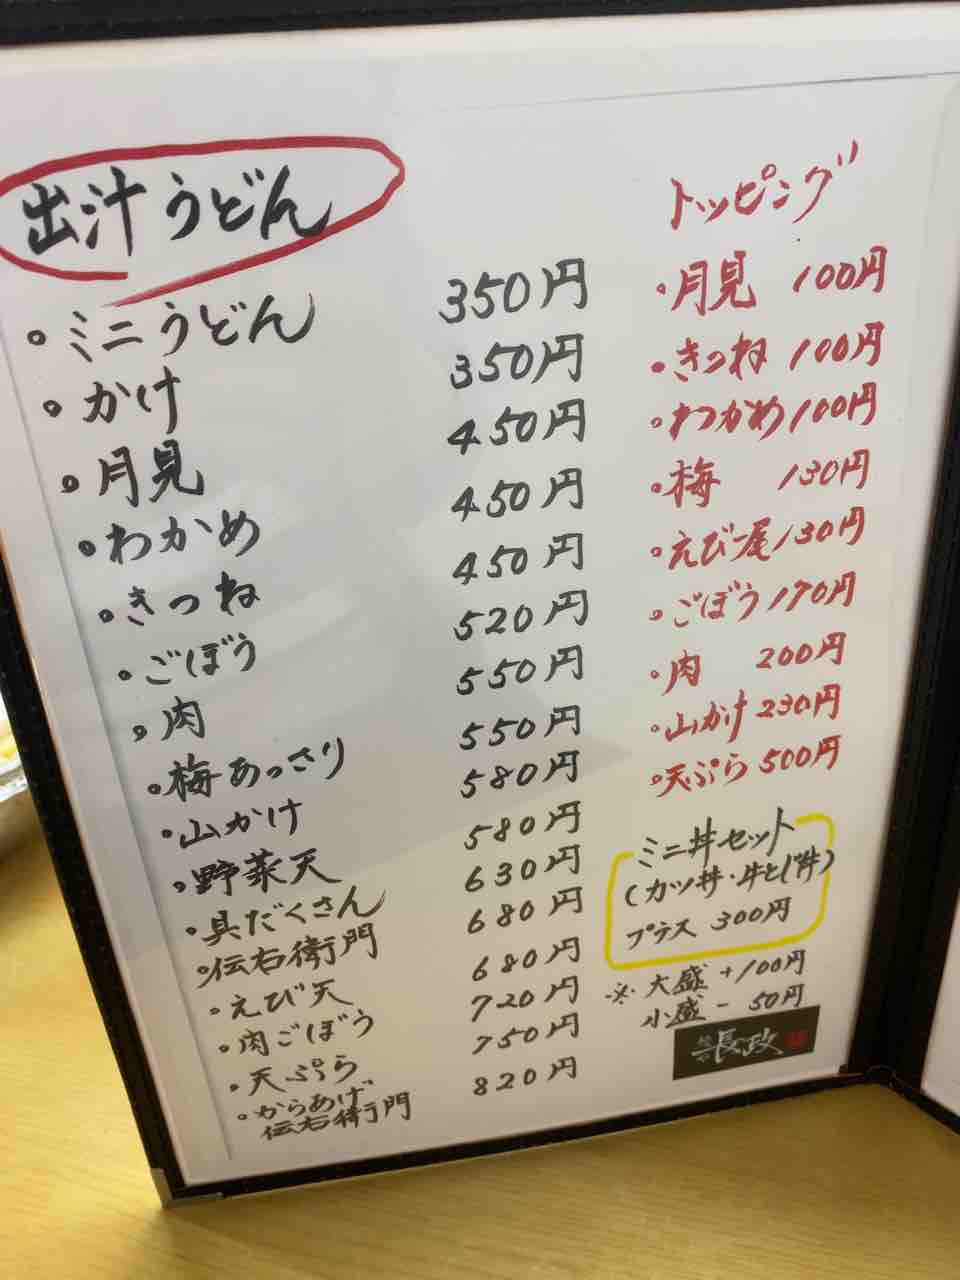 出汁うどん
・ミニうどん 350円
・かけ 350円
・月見 450円
・わかめ 450円
・きつね 450円
・ごぼう 520円
・肉 550円
・梅あっさり 550円
・山かけ 580円
・野菜天 580円
・具だくさん 630円
・伝右衛門 680円
・えび天 680円
・肉ごぼう 720円
・天ぷら 750円
・からあげ
伝右衛門 820円
トッピング
・月見 100円
・きつね 100円
・わかめ 100円
・梅 130円
・えび一尾 130円
・ごぼう 170円
・肉 200円
・山かけ 230円
・天ぷら 500円
ミニ丼セット
(カツ丼・牛とじ丼)
プラス 300円
※大盛 +100円
小盛 - 50円
長政